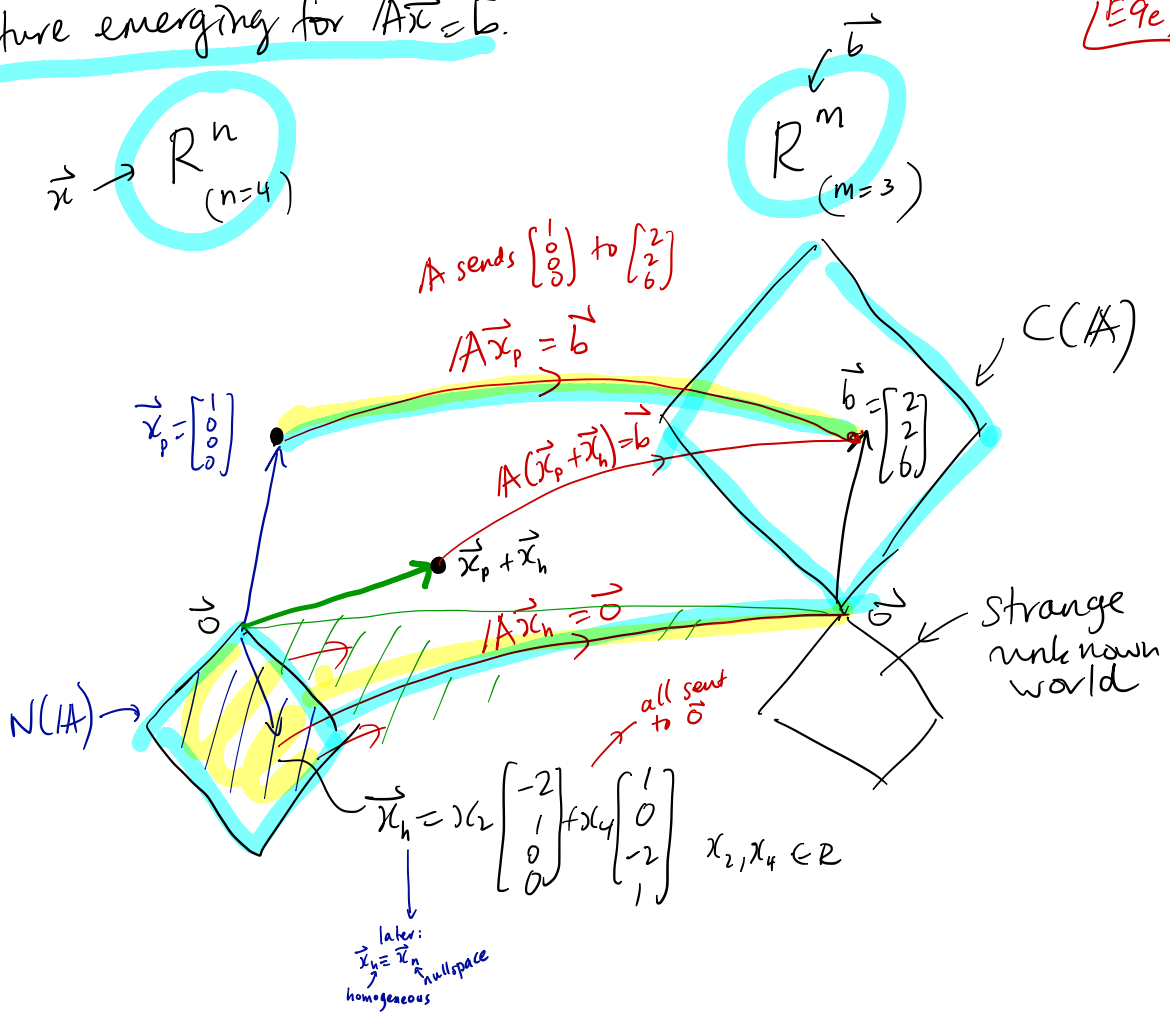 ture emerging for 𝔸x⃗ = b⃗.
E9e
b⃗
x⃗
Rⁿ
(n=4)
Rᵐ
(m=3)
𝔸 sends [1 0 0 0] to [2 2 6]
C(𝔸)
𝔸x⃗ₚ = b⃗
x⃗ₚ = [1 0 0 0]
b⃗ = [2 2 6]
𝔸(x⃗ₚ + x⃗ₕ) = b⃗
x⃗ₚ + x⃗ₕ
0⃗
𝔸x⃗ₕ = 0⃗
0⃗
strange
unknown
world
N(𝔸)
all sent
to 0⃗
x⃗ₕ = x₂ [-2 1 0 0] + x₄ [1 0 -2 1] x₂, x₄ ∈ R
later:
x⃗ₕ ≡ x⃗ₙ
nullspace
homogeneous